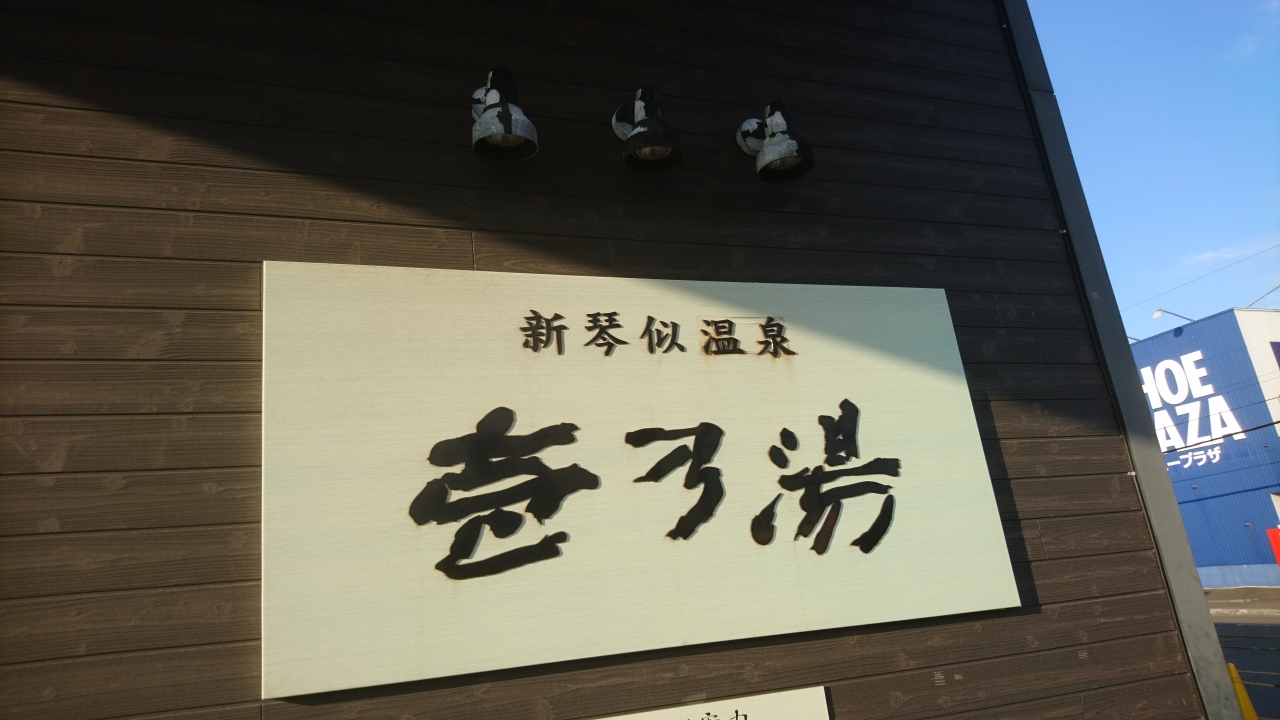 新琴似温泉
壱乃湯
HOE
AZA
ープラザ